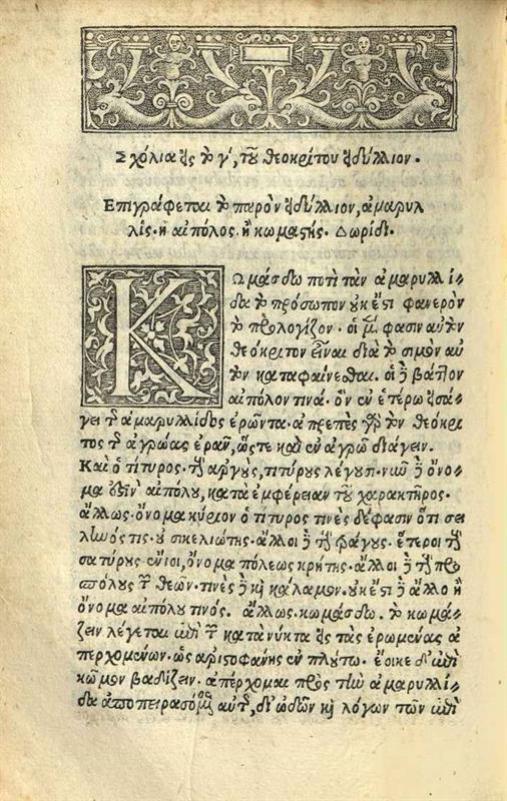 Σχόλια εἰς τὸ γ', τοῦ θεοκρίτου εἰδύλλιον.
Επιγράφεται τὸ παρὸν εἰδύλλιον, ἀμαρυλ
λὶς. ἢ αἰπόλος. ἢ κωμαστής. Δωρίδι.
ΚΩμάσδω ποτὶ τὰν ἀμαρυλλί-
δα τὸ πρόσωπον οὐκ ἔστι φανερὸν
τὸ προλογίζον. οἱ μὲν φασιν αὐτὸν
θεόκριτον εἶναι διὰ τὸ σιμὸν αὐ
τὸν καταφαίνεσθαι. οἱ δὲ βάττον
αἰπόλον τινά. ὃν ἐν ἑτέρω εἰσά-
γει τῆς ἀμαρυλλίδος ἐρῶντα. ἀπρεπὲς γὰρ τὸν θεόκρι
τος τῆς ἀγρώας ἐρᾶν, ὥστε καὶ ἐν ἀγρῶ διάγειν.
Καὶ ὁ τίτυρος. τοὺς τιτύρους λέγουσι. νῦν δὲ ὄνο-
μα αἰπόλου, κατὰ ἐμφέρειαν τοῦ χαρακτῆρος.
ἄλλως. ὄνομα κύριον ὁ τίτυρος τινὲς δέ φασιν ὅτι σει
ληνός τις. ὁ σικελιώτης. ἄλλοι δὲ τοὺς τράγους. ἕτεροι τοὺς
σατύρους ἔνιοι, ὄνομα πόλεως κρήτης. ἄλλοι δὲ τοὺς προ
πόλους τῶν θεῶν. τινὲς δὲ καὶ κάλαμον. οὐκ ἔστι δὲ ἄλλο ἢ
ὄνομα αἰπόλου τινός. ἄλλως. κωμάσδω. τὸ κωμά-
ζειν λέγεται ἐπὶ τῶν κατὰ νύκτα εἰς τὰς ἐρωμένας ἀ
περχομένων. ὡς ἀριστοφάνης ἐν πλούτω. ἔοικε δ' ἐπὶ
κῶμον βαδίζειν. ἀπέρχομαι πρὸς τὴν ἀμαρυλλί-
δα ἀποπειρασόμενος αὐτῆς, δι' ὠδῶν καὶ λόγων τῶν ἐπὶ